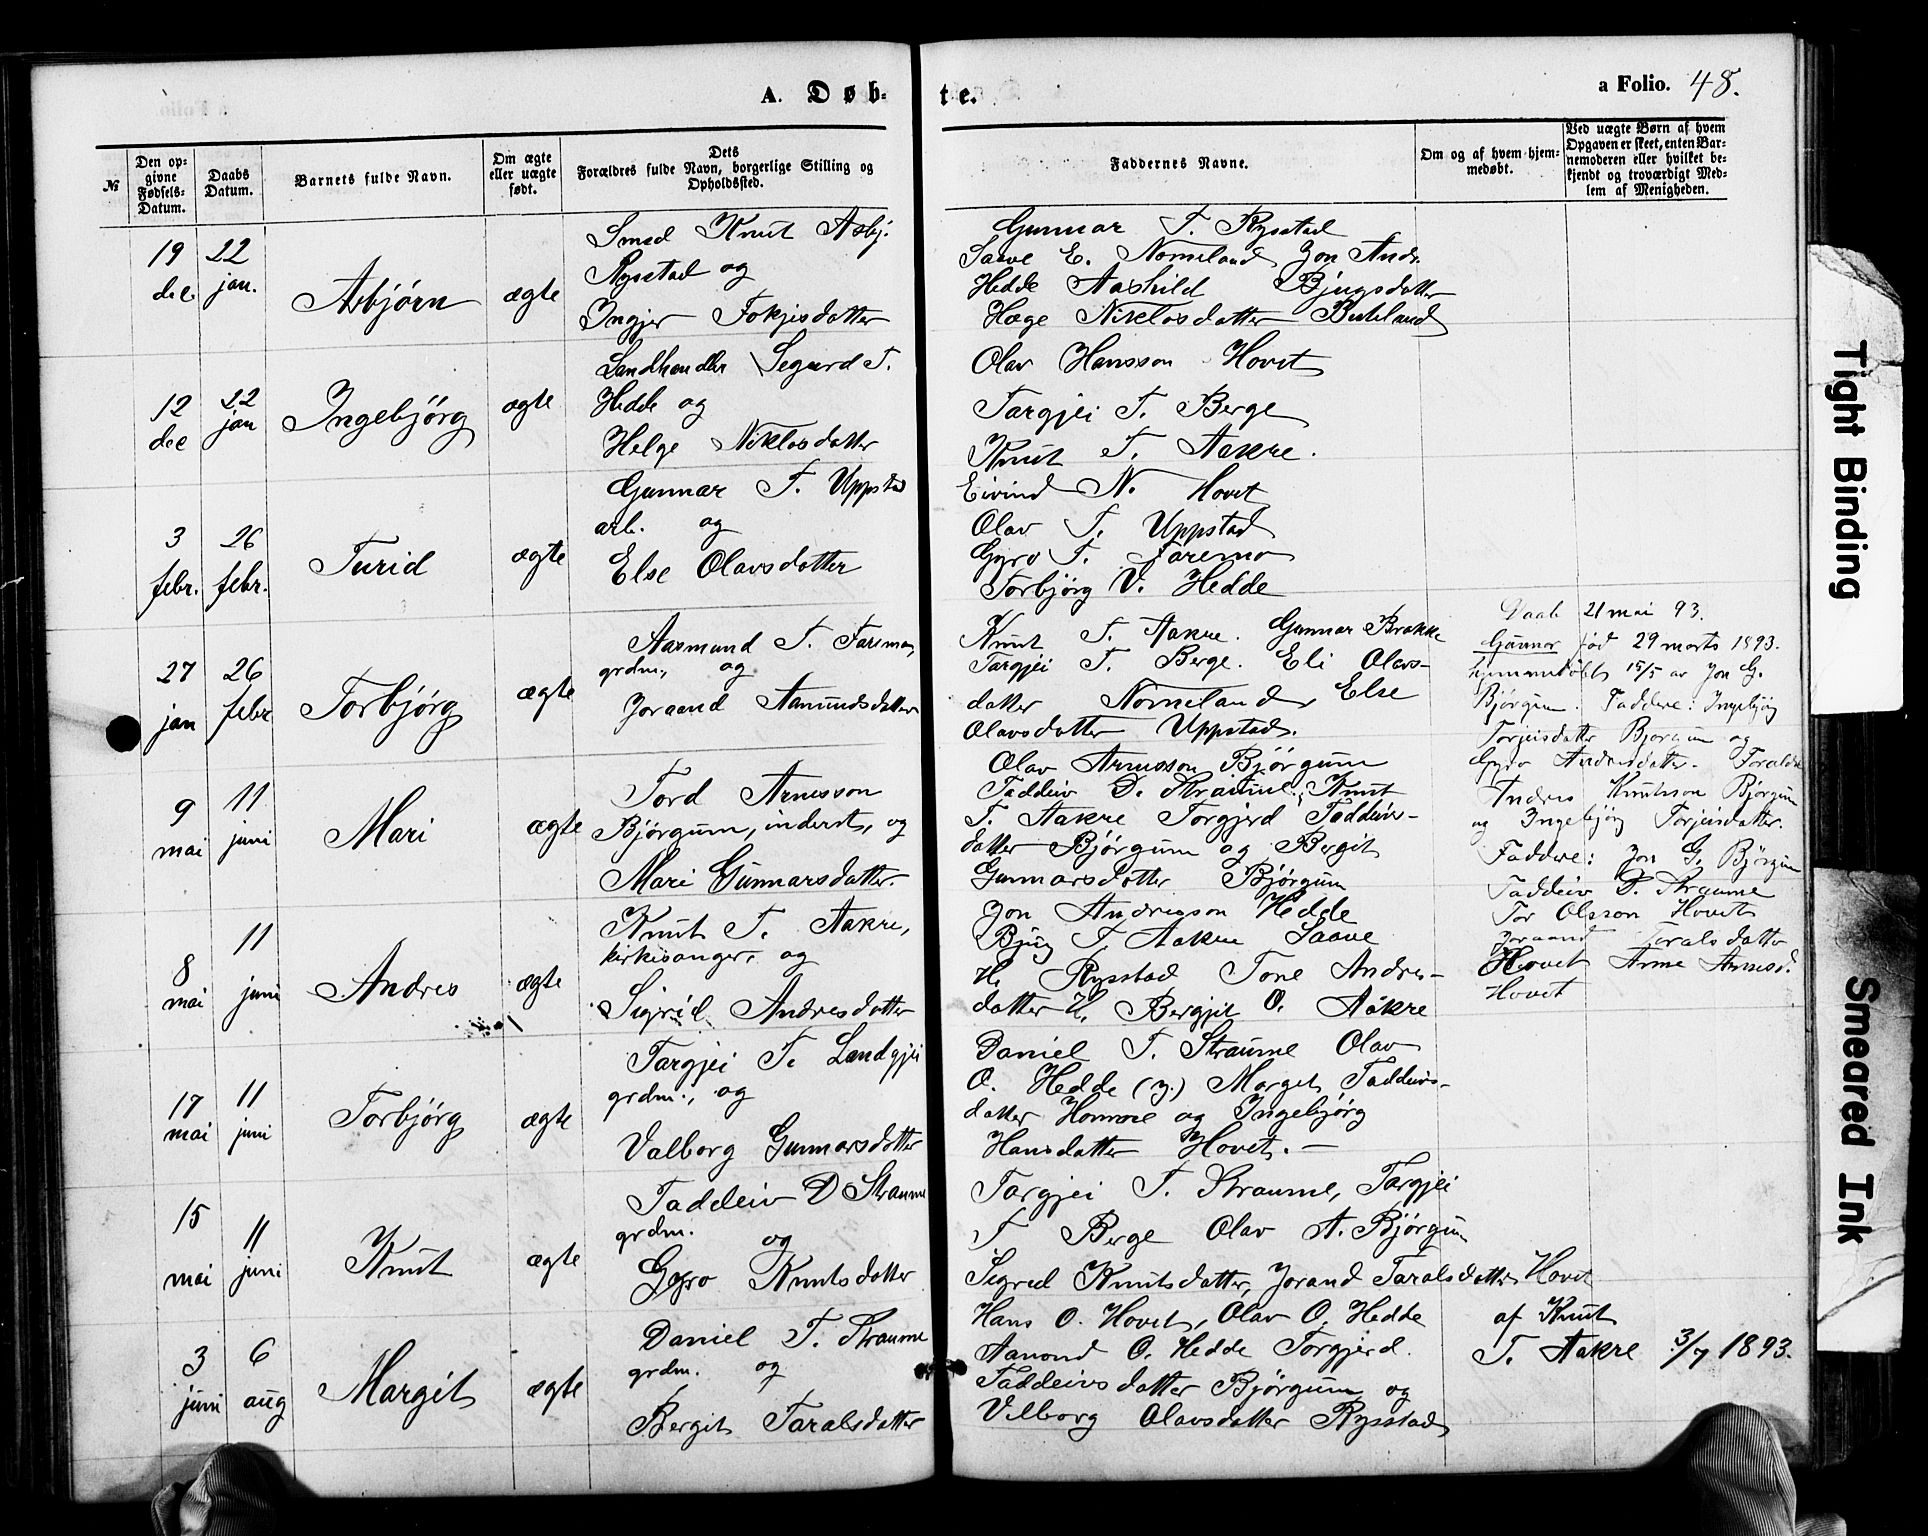 A. Døb-
te.
a Folio. 48.
№
Den op-
givne
Fødsels-
Datum.
Daabs
Datum.
Barnets fulde Navn.
Om ægte
eller uægte
født.
Dets
Forældres fulde Navn, borgerlige Stilling og
Opholdssted.
Faddernes Navne.
Om og af hvem hjem-
medøbt.
Ved uægte Børn af hvem
Opgaven er skeet, enten Bar-
nemoderen eller hvilket be-
kjendt og troværdigt Med-
lem af Menigheden.
19
dec
22
jan.
Asbjörn
ægte
Smed Knut Asbj.
Rysstad og
Ingjer Fokjesdatter
Gunnar T. Rysstad
Saave E. Nomeland Jon Andr.
Hedde Aashild Bjugsdatter
Hæge Niklosdatter
12
dec
22
jan
Ingebjörg
ægte
Landhandler Segurd T.
Hedde og
Helge Niklosdatter
Olav Hansson Hovet
Targjei T. Berge
Knut T. Aakre.
Eivind N. Hovet
3
febr.
26
febr.
Turid
ægte
Gunnar T. Uppstad
arb. og
Else Olavsdatter
Olav T. Uppstad
Gyro T. Faremo
Torbjörg V. Hedde
27
jan
26
febr
Torbjörg
ægte
Aasmund T. Faremo,
grdm., og
Joraand Aamundsdatter
Knut T. Aakre. Gunnar Brokke
Targjei T. Berge. Eli Olavs-
datter Nomeland, Else
Olavsdatter Uppstad.
Daab 21 mai 93.
Gunnar fød 29 marts 1893.
hjemmedöbt 15/5 av Jon G.
Björgum. Faddere: Ingebjörg
Torjeisdatter Björgum og
Gyro Andresdatter. Foreldre
Andres Knutsson Björgum
og Ingebjörg Torjeisdatter.
Faddere: Jon G. Björgum
Taddeiv D. Straume
Tor Olsson Hovet
Joraand Taralsdatter
Hovet Anne Arnesd.
Hovet
9
mai
11
juni
Mari
ægte
Tord Arnesson
Björgum, inderst, og
Mari Gunnarsdatter.
Olav Arnesson Björgum
Taddeiv D. Straume, Knut
T. Aakre Torgjerd Taddeivs-
datter Björgum og Bergit
Gunnarsdotter Björgum
8
mai
11
juni
Andres
ægte
Knut T. Aakre,
kirkesanger, og
Sigrid Andresdotter
Jon Andresson Hedde
Bjug T. Aakre Saave
H. Rysstad Tone Andres-
datter H. Bergjit O. Aakre
17
mai
11
juni
Torbjörg
ægte
Targjei T. Landgjei
grdm., og
Valborg Gunnarsdotter
Daniel T. Straume Olav
O. Hedde (y.) Morget Taddeivs-
datter Homme og Ingebjörg
Hansdatter Hovet. —
15
mai
11
juni
Knut
ægte
Taddeiv D Straume
grdm. og
Gyro Knutsdatter
Targjei T. Straume, Targjei
T Berge Olav A. Björgum
Sigrid Knutsdatter, Jorand Taralsdatter Hovet
3
juni
6
aug
Margit
ægte
Daniel T. Straume
grdm. og
Bergit Taralsdatter
Hans O. Hovet, Olav O. Hedde
Aamond O. Hedde Torgjerd
Taddeivsdatter Björgum og
Vilborg Olavsdatter Rysstad
af Knut
T. Aakre 3/7 1893.
Tight Binding
Smeared Ink